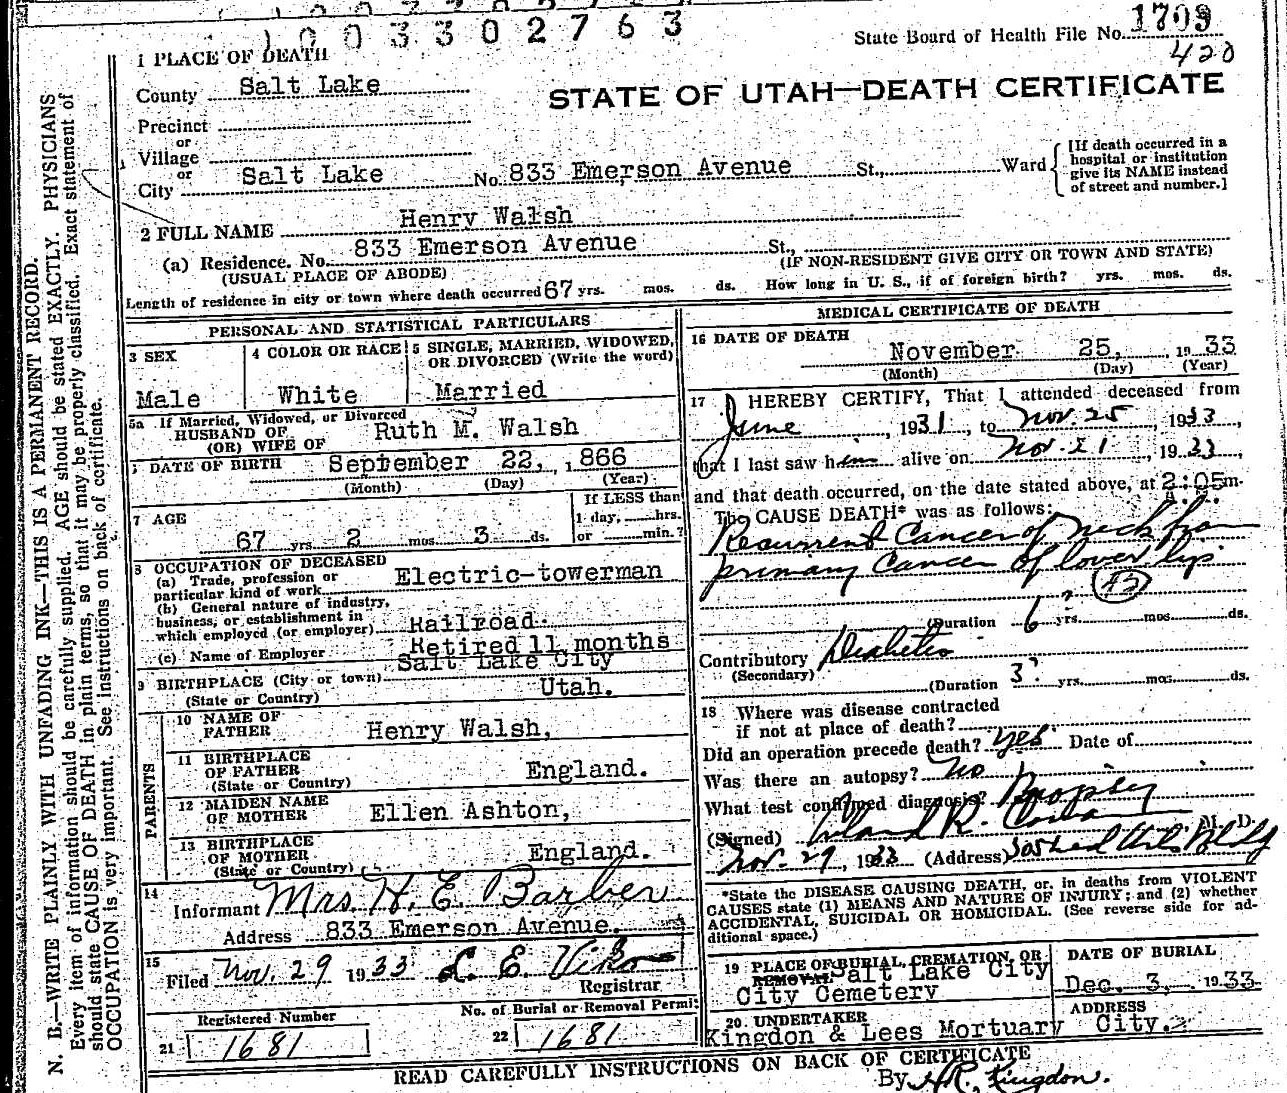 1003302763
State Board of Health File No. 1709
420
1 PLACE OF DEATH
County Salt Lake
STATE OF UTAH—DEATH CERTIFICATE
Precinct
or
Village
or
City Salt Lake No. 833 Emerson Avenue St., Ward
[If death occurred in a hospital or institution give its NAME instead of street and number.]
2 FULL NAME Henry Walsh
(a) Residence. No. 833 Emerson Avenue St.,
(USUAL PLACE OF ABODE) (IF NON-RESIDENT GIVE CITY OR TOWN AND STATE)
Length of residence in city or town where death occurred 67 yrs. mos. ds. How long in U. S., if of foreign birth? yrs. mos. ds.
PERSONAL AND STATISTICAL PARTICULARS
3 SEX
Male
4 COLOR OR RACE
White
5 SINGLE, MARRIED, WIDOWED, OR DIVORCED (Write the word)
Married
5a If Married, Widowed, or Divorced
HUSBAND OF
(OR) WIFE OF Ruth M. Walsh
DATE OF BIRTH September 22, 1866
(Month) (Day) (Year)
7 AGE
67 yrs. 2 mos. 3 ds.
If LESS than
1 day, hrs.
or min.?
8 OCCUPATION OF DECEASED
(a) Trade, profession or
particular kind of work Electric-towerman
(b) General nature of industry,
business, or establishment in
which employed (or employer) Railroad
(c) Name of Employer Retired 11 months
9 BIRTHPLACE (City or town) Salt Lake City
(State or Country) Utah.
PARENTS
10 NAME OF
FATHER Henry Walsh,
11 BIRTHPLACE
OF FATHER England.
(State or Country)
12 MAIDEN NAME
OF MOTHER Ellen Ashton,
13 BIRTHPLACE
OF MOTHER England.
(State or Country)
14
Informant Mrs H. E. Barber
Address 833 Emerson Avenue.
15
Filed Nov. 29 1933 L. E. Viko
Registrar
Registered Number
21 1681
No. of Burial or Removal Permit
22 1681
MEDICAL CERTIFICATE OF DEATH
16 DATE OF DEATH
November 25, 1933
(Month) (Day) (Year)
17 I HEREBY CERTIFY, That I attended deceased from
June, 1931, to Nov. 25, 1933,
that I last saw him alive on Nov. 21, 1933,
and that death occurred, on the date stated above, at 2:05 m.
The CAUSE DEATH* was as follows:
Recurrent Cancer of neck from
primary Cancer of lower lip
(Duration 6? yrs. mos. ds.
Contributory Diabetes
(Secondary)
(Duration 3? yrs. mos. ds.
18 Where was disease contracted
if not at place of death?
Did an operation precede death? Yes Date of
Was there an autopsy? No
What test confirmed diagnosis? Biopsy
(Signed) M. D.
Nov. 29, 1933 (Address) Bldg
*State the DISEASE CAUSING DEATH, or, in deaths from VIOLENT
CAUSES state (1) MEANS AND NATURE OF INJURY; and (2) whether
ACCIDENTAL, SUICIDAL OR HOMICIDAL. (See reverse side for ad-
ditional space.)
19 PLACE OF BURIAL, CREMATION, OR
REMOVAL Salt Lake City
City Cemetery
DATE OF BURIAL
Dec. 3, 1933
20 UNDERTAKER
Kingdon & Lees Mortuary
ADDRESS
City.
READ CAREFULLY INSTRUCTIONS ON BACK OF CERTIFICATE
By H.R. Kingdon.
N. B.—WRITE PLAINLY WITH UNFADING INK—THIS IS A PERMANENT RECORD.
Every item of information should be carefully supplied. AGE should be stated EXACTLY. PHYSICIANS
should state CAUSE OF DEATH in plain terms, so that it may be properly classified. Exact statement of
OCCUPATION is very important. See instructions on back of certificate.